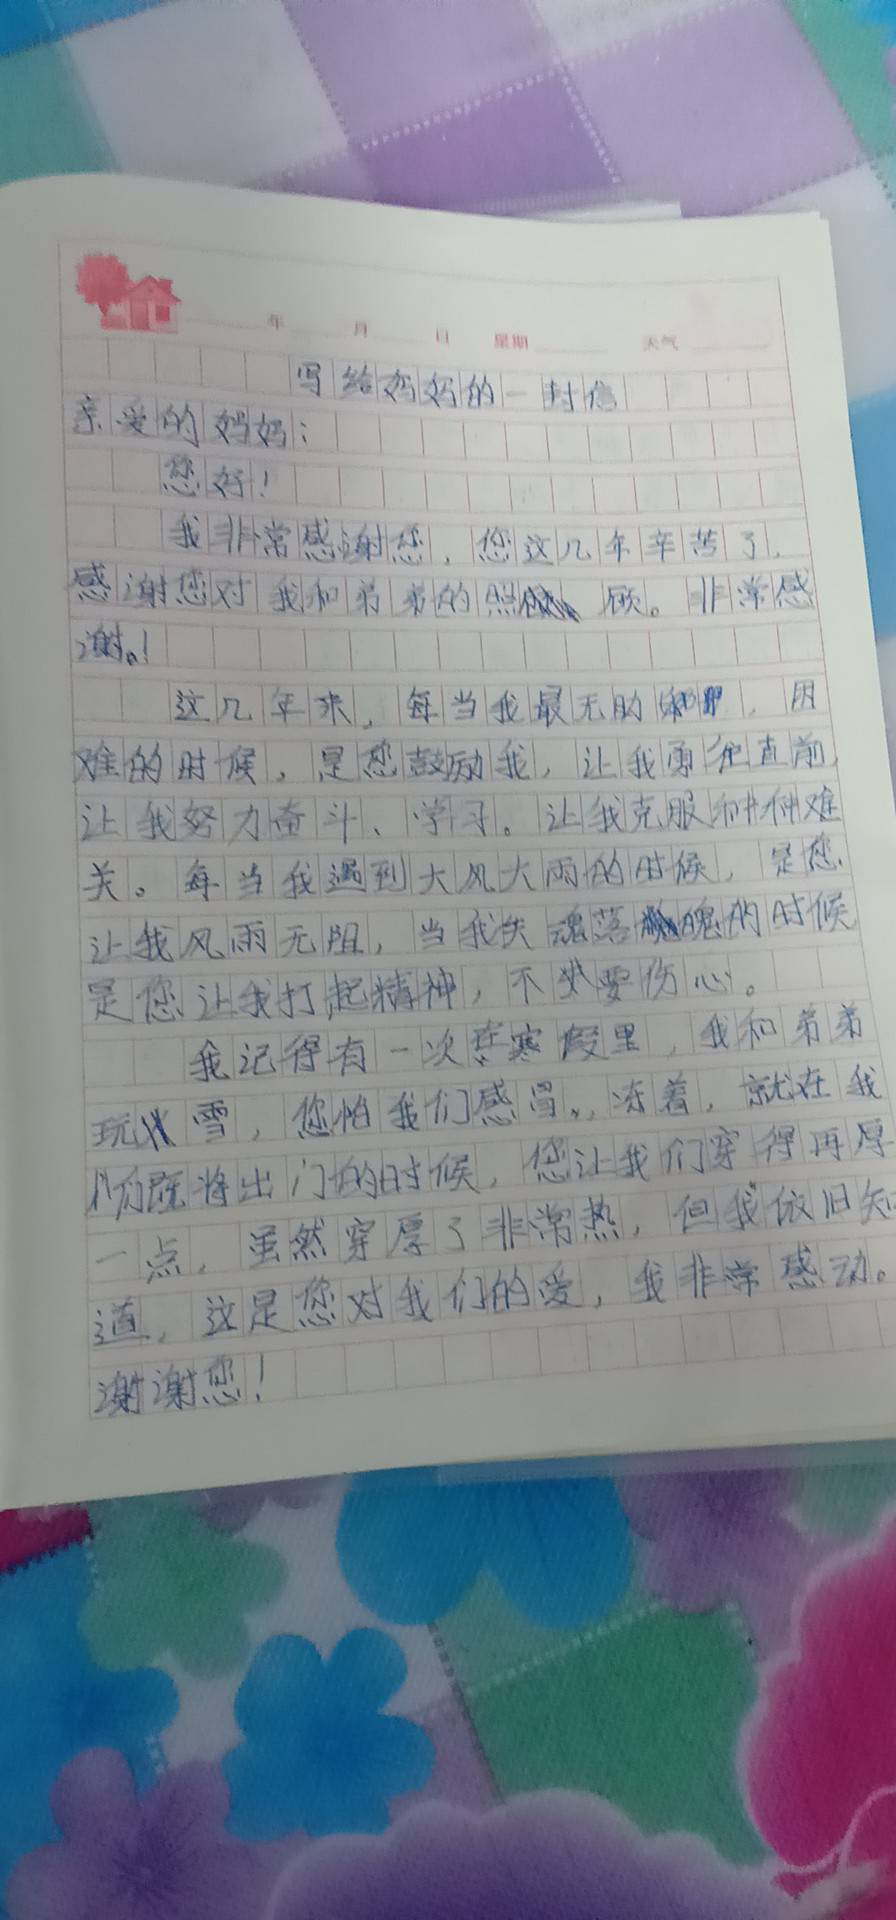 年 月 日 星期 天气
写给妈妈的一封信
亲爱的妈妈：
您好！
我非常感谢您，您这几年辛苦了，
感谢您对我和弟弟的照顾。非常感
谢。！
这几年来，每当我最无助，困
难的时候，是您鼓励我，让我勇往直前，
让我努力奋斗、学习。让我克服种种难
关。每当我遇到大风大雨的时候，是您
让我风雨无阻，当我失魂落魄的时候
是您让我打起精神，不要伤心。
我记得有一次在寒假里，我和弟弟
玩雪，您怕我们感冒，冻着，就在我
们既将出门的时候，您让我们穿得再厚
一点，虽然穿厚了非常热，但我依旧知
道，这是您对我们的爱，我非常感动。
谢谢您！